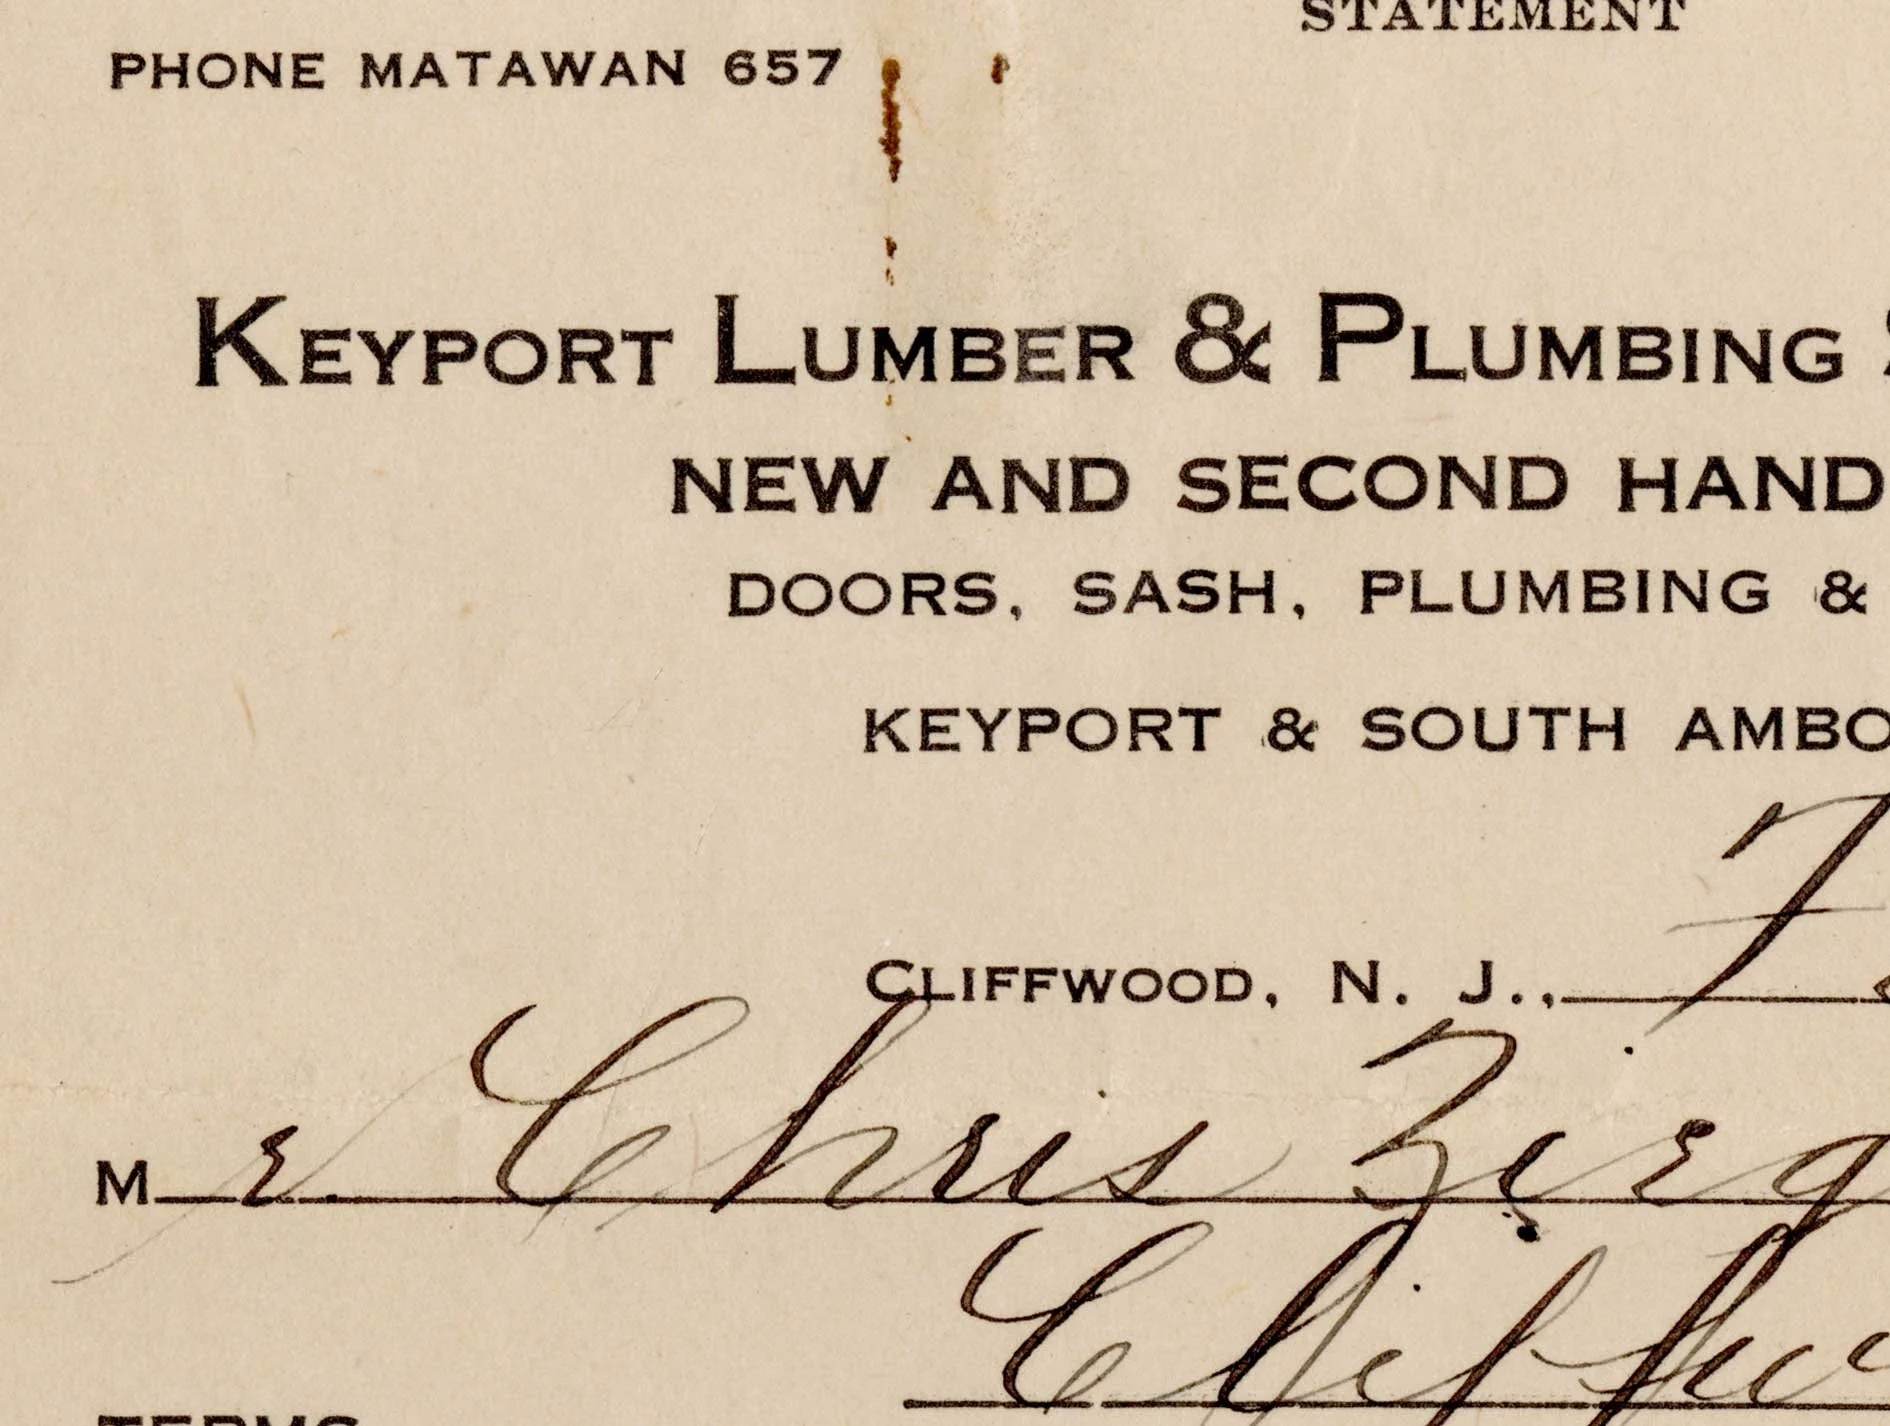 STATEMENT
PHONE MATAWAN 657
KEYPORT LUMBER & PLUMBING
NEW AND SECOND HAND
DOORS, SASH, PLUMBING &
KEYPORT & SOUTH AMBO
CLIFFWOOD, N. J., F
Mr. Chris Zieg
Cliffwo
TERMS